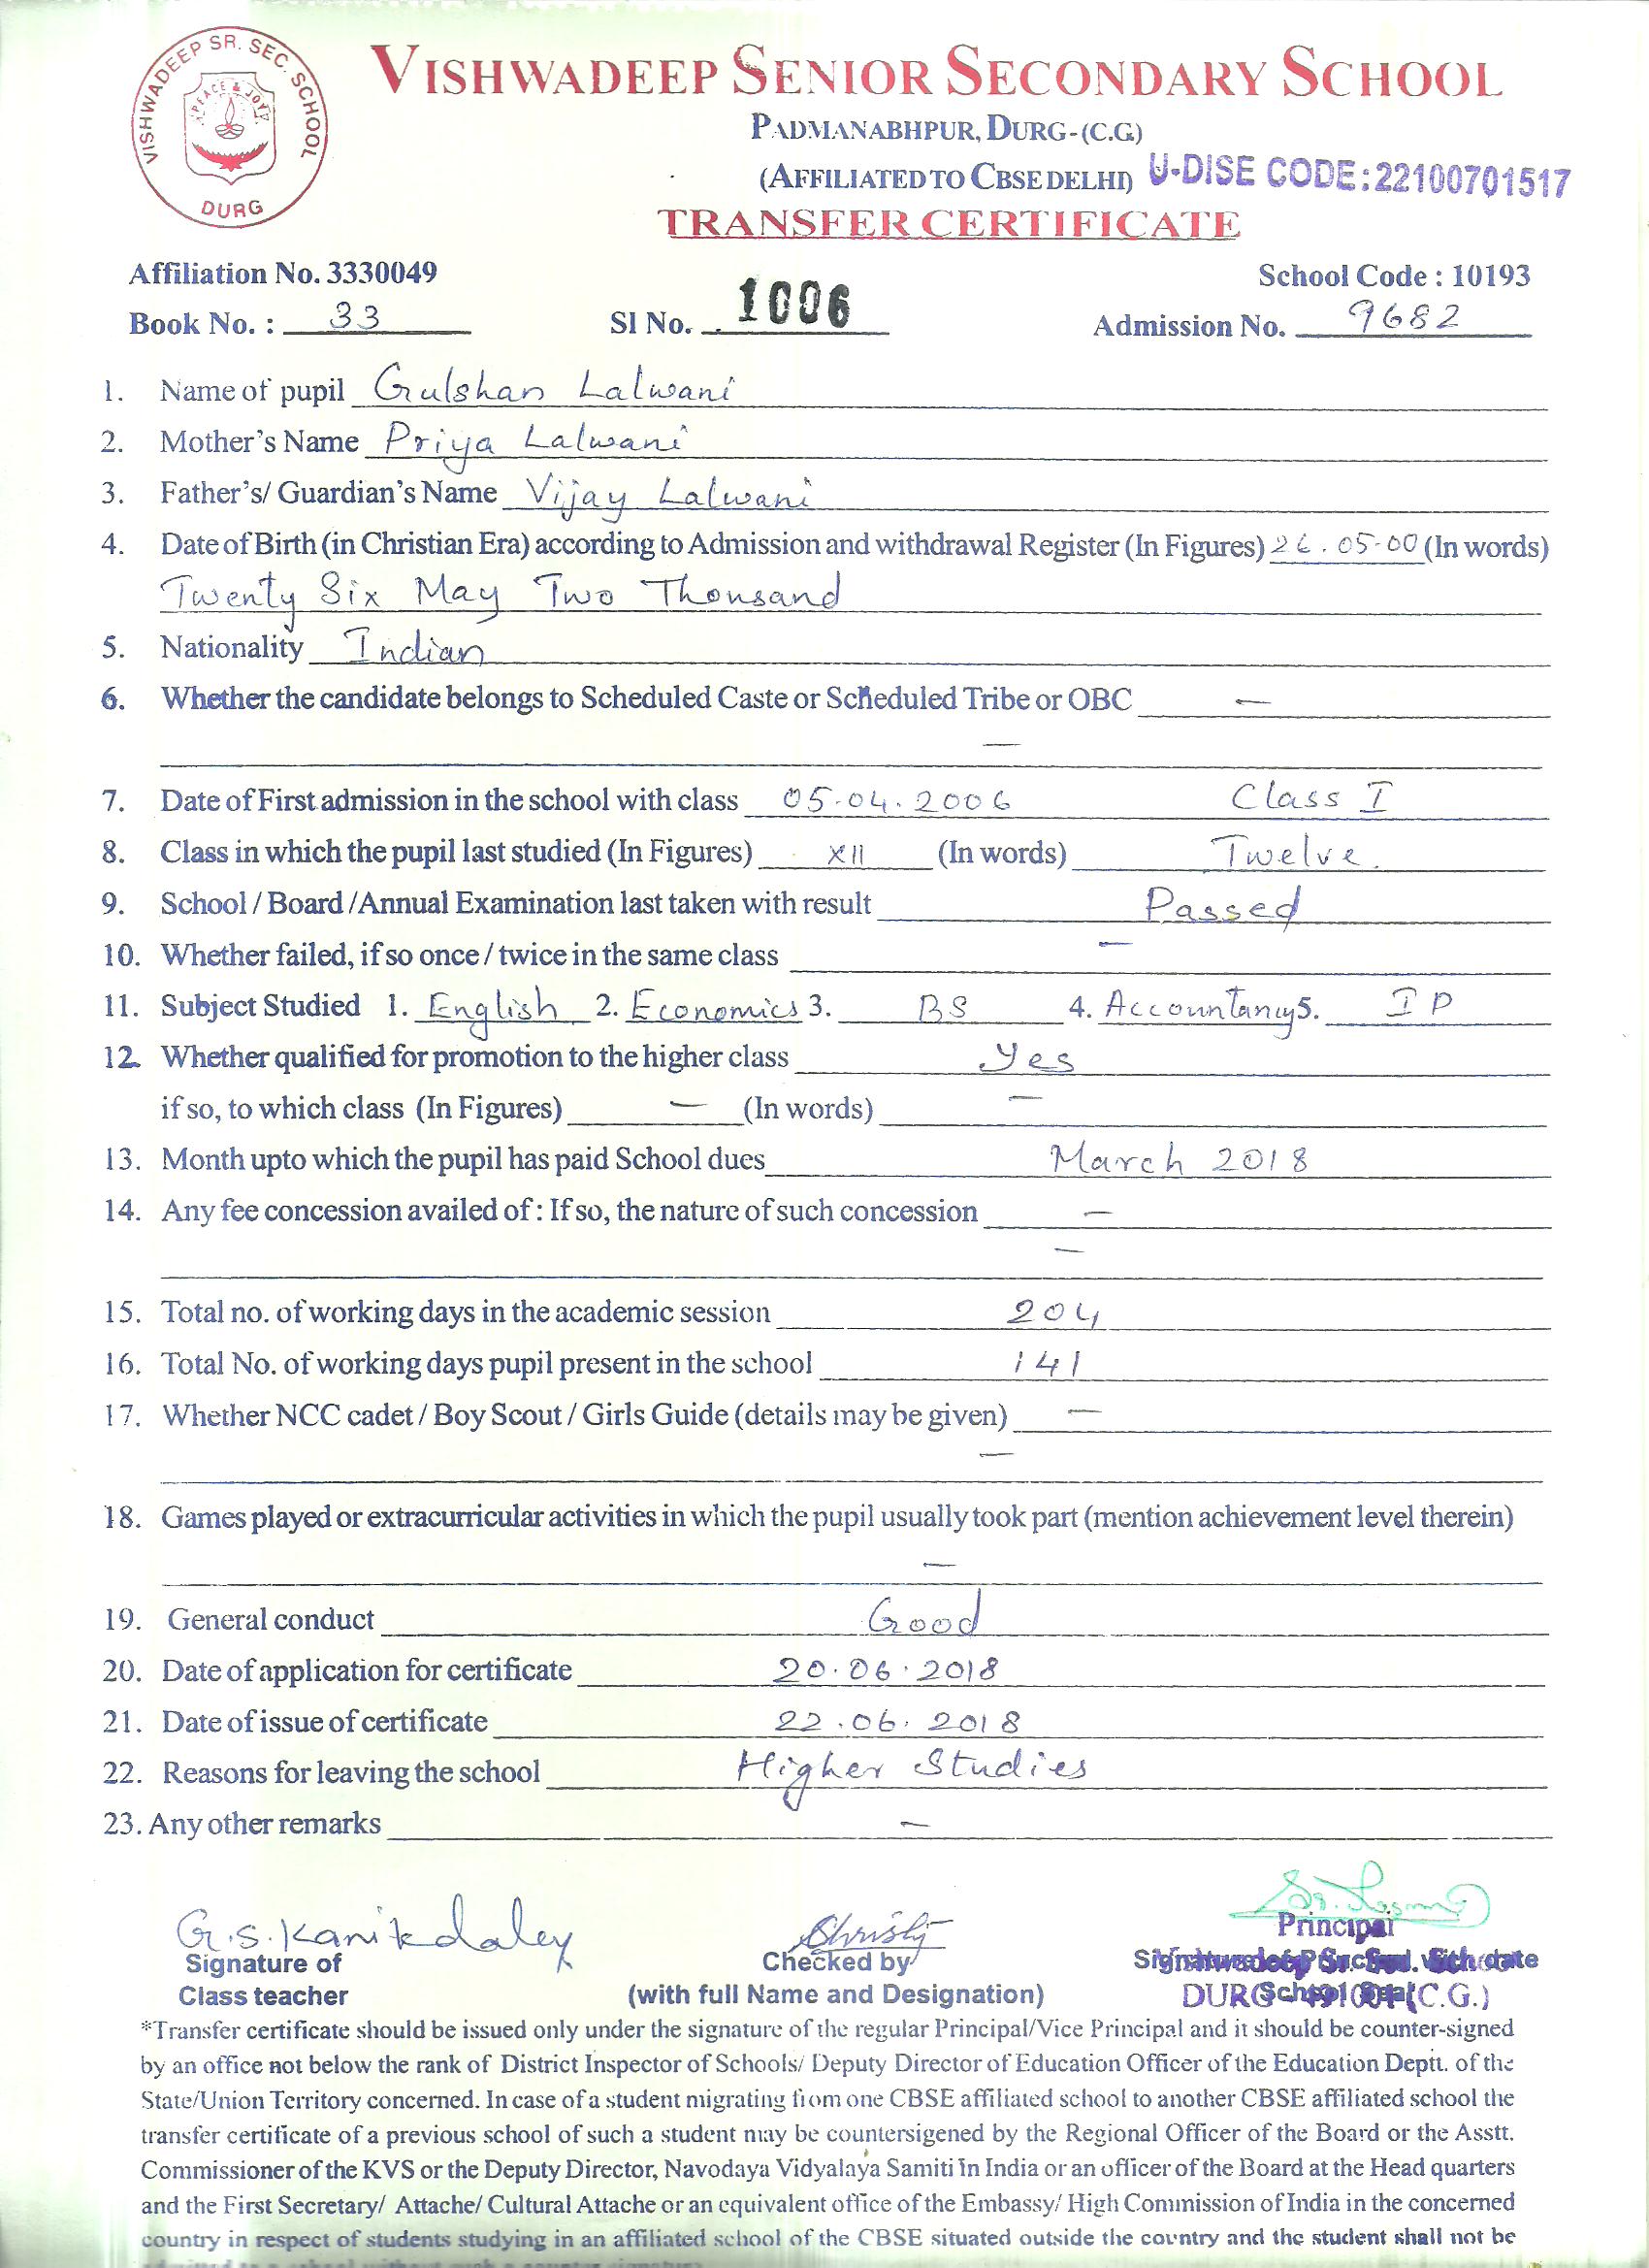 VISHWADEEP SR. SEC. SCHOOL
PEACE & JOY
DURG
VISHWADEEP SENIOR SECONDARY SCHOOL
PADMANABHPUR, DURG-(C.G.)
(AFFILIATED TO CBSE DELHI) U-DISE CODE:22100701517
TRANSFER CERTIFICATE
Affiliation No. 3330049 School Code : 10193
Book No. : 33 Sl No. 1006 Admission No. 9682
1. Name of pupil Gulshan Lalwani
2. Mother's Name Priya Lalwani
3. Father's/ Guardian's Name Vijay Lalwani
4. Date of Birth (in Christian Era) according to Admission and withdrawal Register (In Figures) 26.05.00 (In words)
Twenty Six May Two Thousand
5. Nationality Indian
6. Whether the candidate belongs to Scheduled Caste or Scheduled Tribe or OBC —
—
7. Date of First admission in the school with class 05.04.2006 Class I
8. Class in which the pupil last studied (In Figures) XII (In words) Twelve.
9. School / Board /Annual Examination last taken with result Passed
10. Whether failed, if so once / twice in the same class —
11. Subject Studied 1. English 2. Economics 3. BS 4. Accountancy 5. IP
12. Whether qualified for promotion to the higher class Yes
if so, to which class (In Figures) — (In words) —
13. Month upto which the pupil has paid School dues March 2018
14. Any fee concession availed of : If so, the nature of such concession —
—
15. Total no. of working days in the academic session 204
16. Total No. of working days pupil present in the school 141
17. Whether NCC cadet / Boy Scout / Girls Guide (details may be given) —
—
18. Games played or extracurricular activities in which the pupil usually took part (mention achievement level therein)
—
19. General conduct Good
20. Date of application for certificate 20.06.2018
21. Date of issue of certificate 22.06.2018
22. Reasons for leaving the school Higher Studies
23. Any other remarks —
G.S. Kanikdaley Christy
Principal
Signature of Checked by Signature of Principal with date
Class teacher (with full Name and Designation) School Seal
DURG - 491001 (C.G.)
*Transfer certificate should be issued only under the signature of the regular Principal/Vice Principal and it should be counter-signed
by an office not below the rank of District Inspector of Schools/ Deputy Director of Education Officer of the Education Deptt. of the
State/Union Territory concerned. In case of a student migrating from one CBSE affiliated school to another CBSE affiliated school the
transfer certificate of a previous school of such a student may be countersigened by the Regional Officer of the Board or the Asstt.
Commissioner of the KVS or the Deputy Director, Navodaya Vidyalaya Samiti in India or an officer of the Board at the Head quarters
and the First Secretary/ Attache/ Cultural Attache or an equivalent office of the Embassy/ High Commission of India in the concerned
country in respect of students studying in an affiliated school of the CBSE situated outside the country and the student shall not be